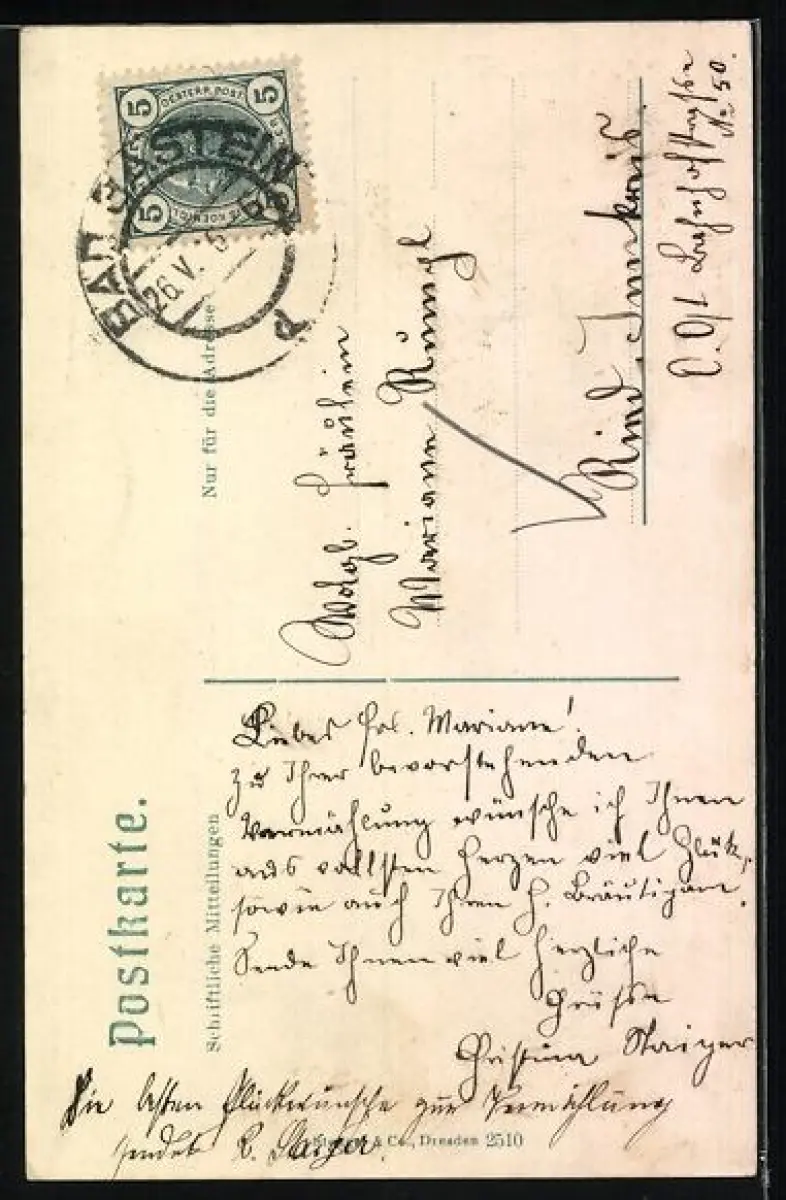 Postkarte.
Schriftliche Mitteilungen
Nur für die Adresse
5 OESTERR. POST. 5
5
BAD GASTEIN
26. V.
Wolgb. Fräulein
Mariane
Ried, Innkreis
O. Öst. Bahnhofstrasse
№ 50.
Liebes Frl. Mariane!
Zu Ihrer bevorstehenden
Vermählung wünsche ich Ihnen
aus vollsten Herzen viel Glük,
sowie auch Ihren H. Bräutigam.
Sende Ihnen viel herzliche
Grüsse
Christina Staiger
Die besten Glückwünsche zur Vermählung
sendet R. Staiger.
& Co., Dresden 2510